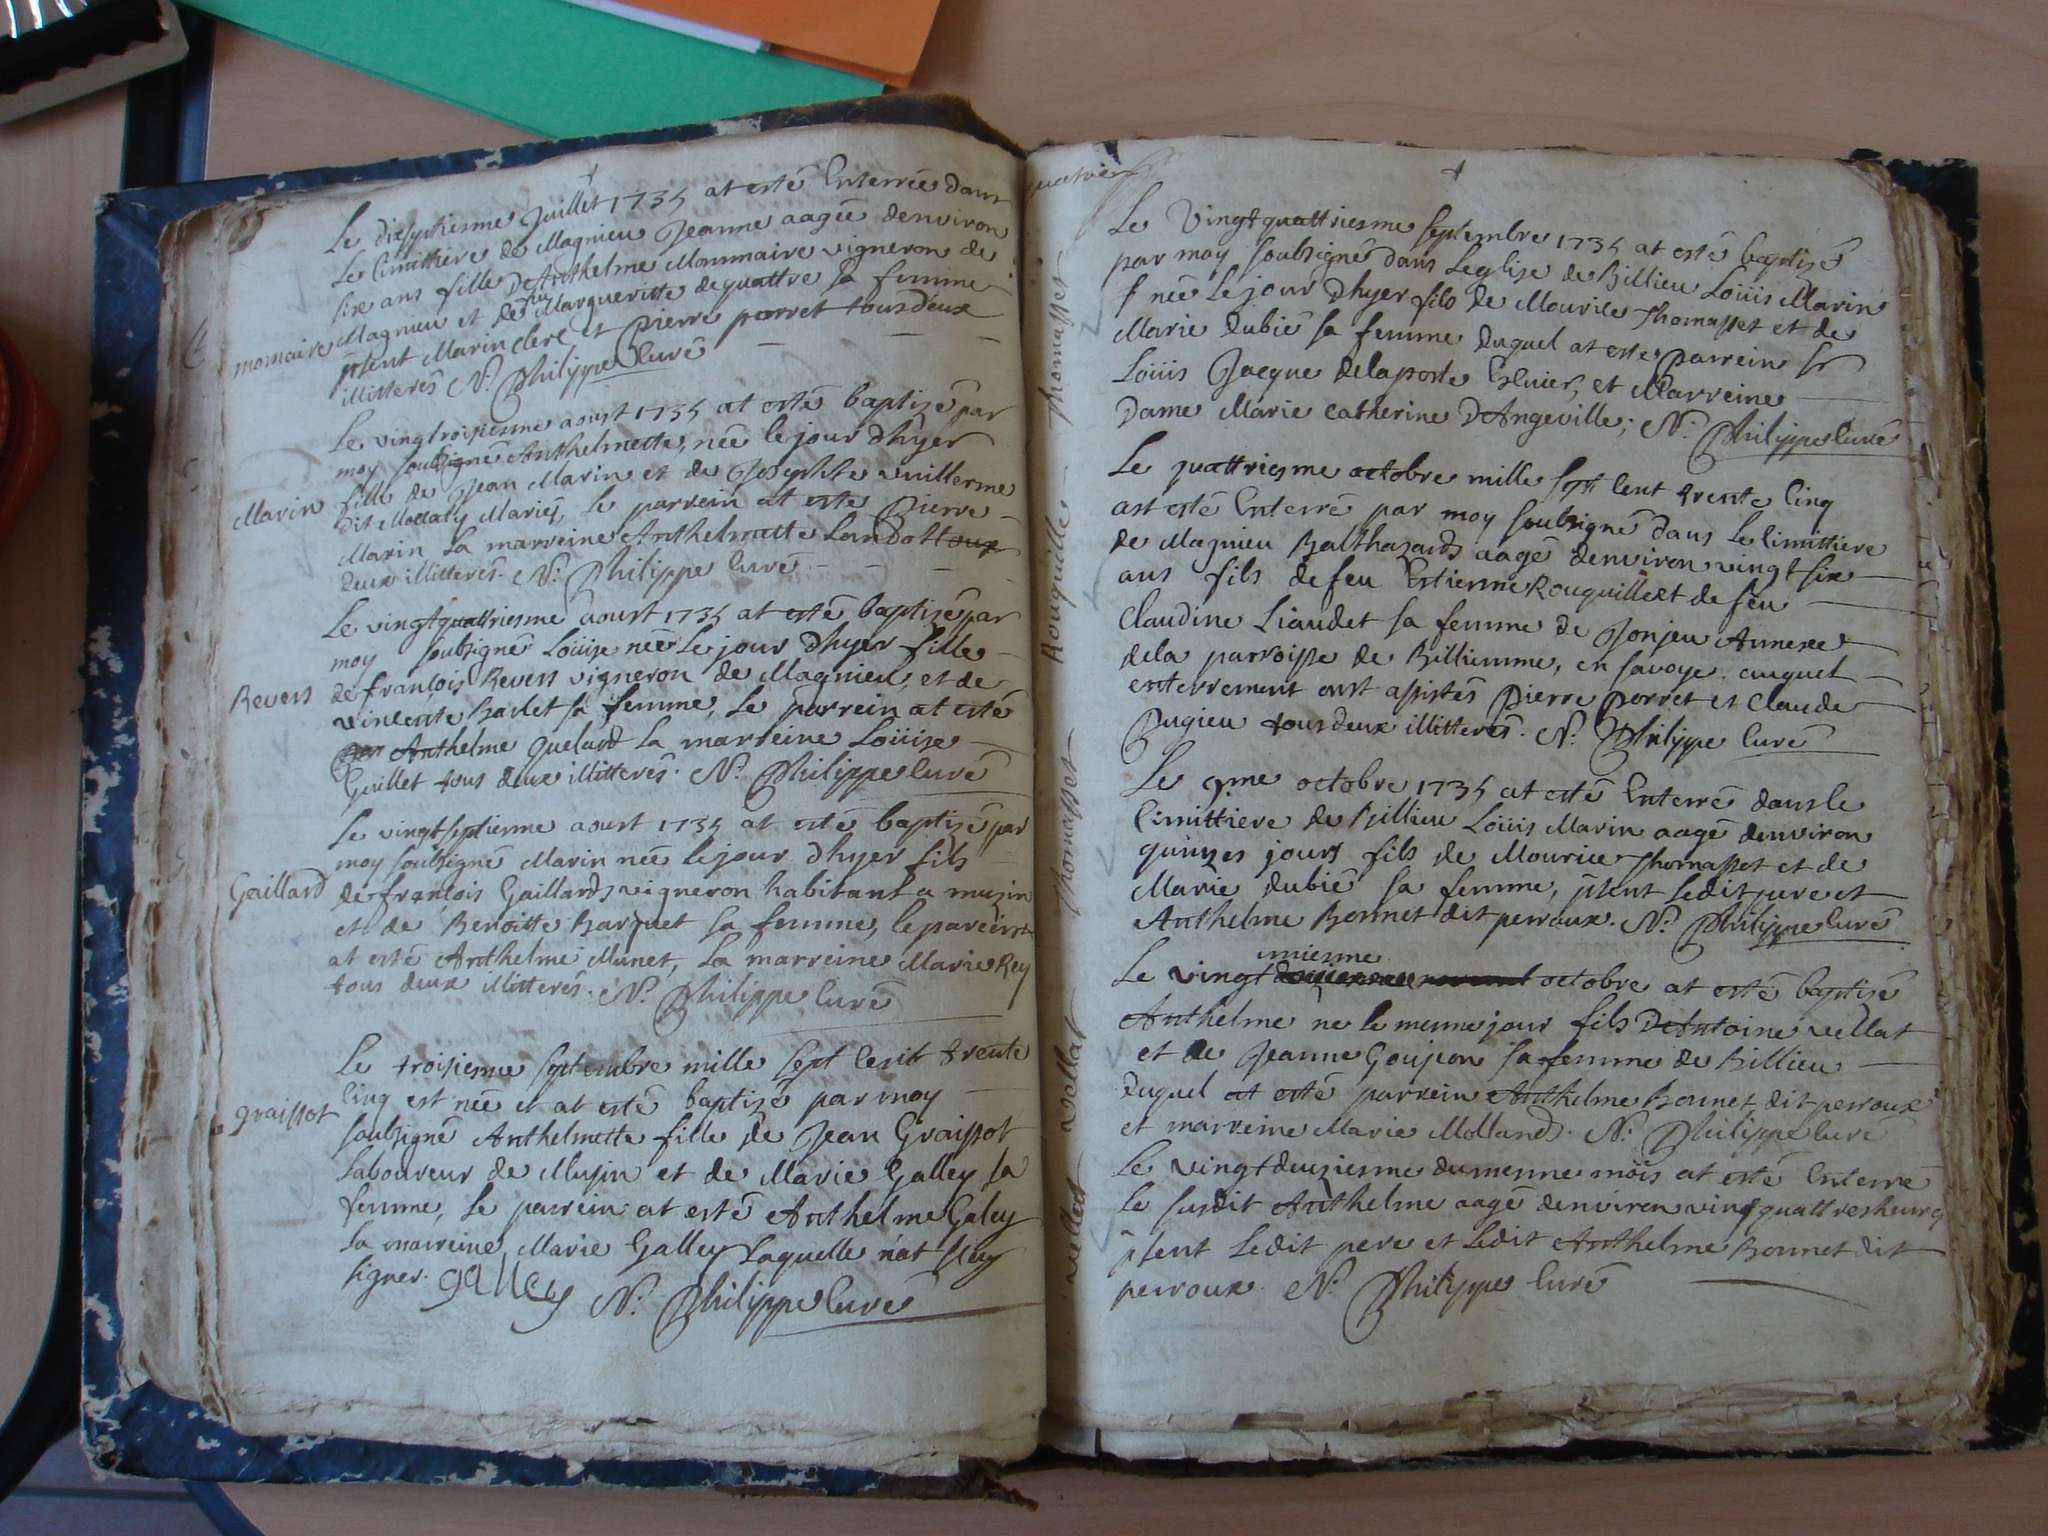 Le dixseptiesme Juillet 1735 at esté Enterrée dans
Le Cimittiere de Magnieu Jeanne aagée denviron
six ans fille DAnthelme Mommaire vigneron de
momaire Magnieu et de feu Margueritte dequattre sa femme
pñtent Marin clerc et Pierre porret tous deux
illitterés N. Philippe Curé
Le vingtroisiesme aoust 1735 at esté baptizé par
moy soubsigné Anthelmette, née le jour dhyer
Marin fille de Jean Marin et de Josephte vuillerme
dit Mollaty Mariés, Le parrein at esté Pierre
Marin La marreine Anthelmette Landot tous
deux illitterés. N. Philippe Curé
Le vingtquattriesme aoust 1735 at esté baptizé par
moy soubsigné Loüise née Le jour dhyer fille
Revers de françois Revers vigneron de Magnieu, et de
vincente Barlet sa femme, Le parrein at esté
Anthelme quelard La marreine Loüise
Guillet tous deux illitterés. N. Philippe Curé
Le vingtseptiesme aoust 1735 at esté baptizé par
moy soubsigné Marin née le jour dhyer fils
Gaillard de françois Gaillard vigneron habitant a muzin
et de Benoitte Barquet sa femme, le parein
at esté Anthelme Munet, La marreine Marie Rey
tous deux illitterés. N. Philippe Curé
Le troisiesme septembre mille sept Cent trente
Cinq est née et at esté baptizé par moy
graissot
soubsigné Anthelmette fille de Jean Graissot
Laboureur de Musin et de Marie Galley sa
femme, Le parrein at esté Anthelme Galey
La marreine Marie Galley Laquelle n'at sceu
signer. galley N. Philippe Curé
Thomasset
Le Vingtquattriesme septembre 1735 at esté baptizé
par moy soubsigné dans Leglise de Billieu Loüis Marin
née Le jour Dhyer fils de Mourice Thomasset et de
Marie dubié sa femme duquel at esté parrein sr
Loüis Jacque delaporte Esluier, et Marreine
Dame Marie Catherine DAngeville; N. Philippe Curé
Rouquille
Le quattriesme octobre mille sept Cent trente Cinq
ast esté Enterré par moy soubsigné dans Le Cimittiere
de Magnieu Balthazard aagé denviron vingt six
ans fils de feu Estienne Rouquille et de feu
Claudine Liaudet sa femme de Jonjeu Annexe
dela parroisse de Billiemme, en savoye. auquel
enterrement ont assistés Pierre Porret et Claude
Dugieu tous deux illitterés. N. Philippe Curé
Thomasset
Le 9me octobre 1735 at esté Enterré dans le
Cimittiere de Billieu Loüis Marin aagé denviron
quinzes jours fils de Mourice Thomasset et de
Marie dubié sa femme, pñtent Ledit pere et
Anthelme Bonnet dit perroux. N. Philippe Curé
vellat
uniesme
Le vingt octobre at esté baptizé
Anthelme ne le mesme jour fils DAntoine vellat
et de Jeanne Goujeon sa femme de Billieu
duquel at esté parrein Anthelme Bonnet dit perroux
et marreine Marie Molland. N. Philippe Curé
vellat
Le vingtdeuziesme du mesme mois at esté Enterré
Le susdit Anthelme aagé denviron vingtquattres heures
pñtent Ledit pere et Ledit Anthelme Bonnet dit
perroux. N. Philippe Curé